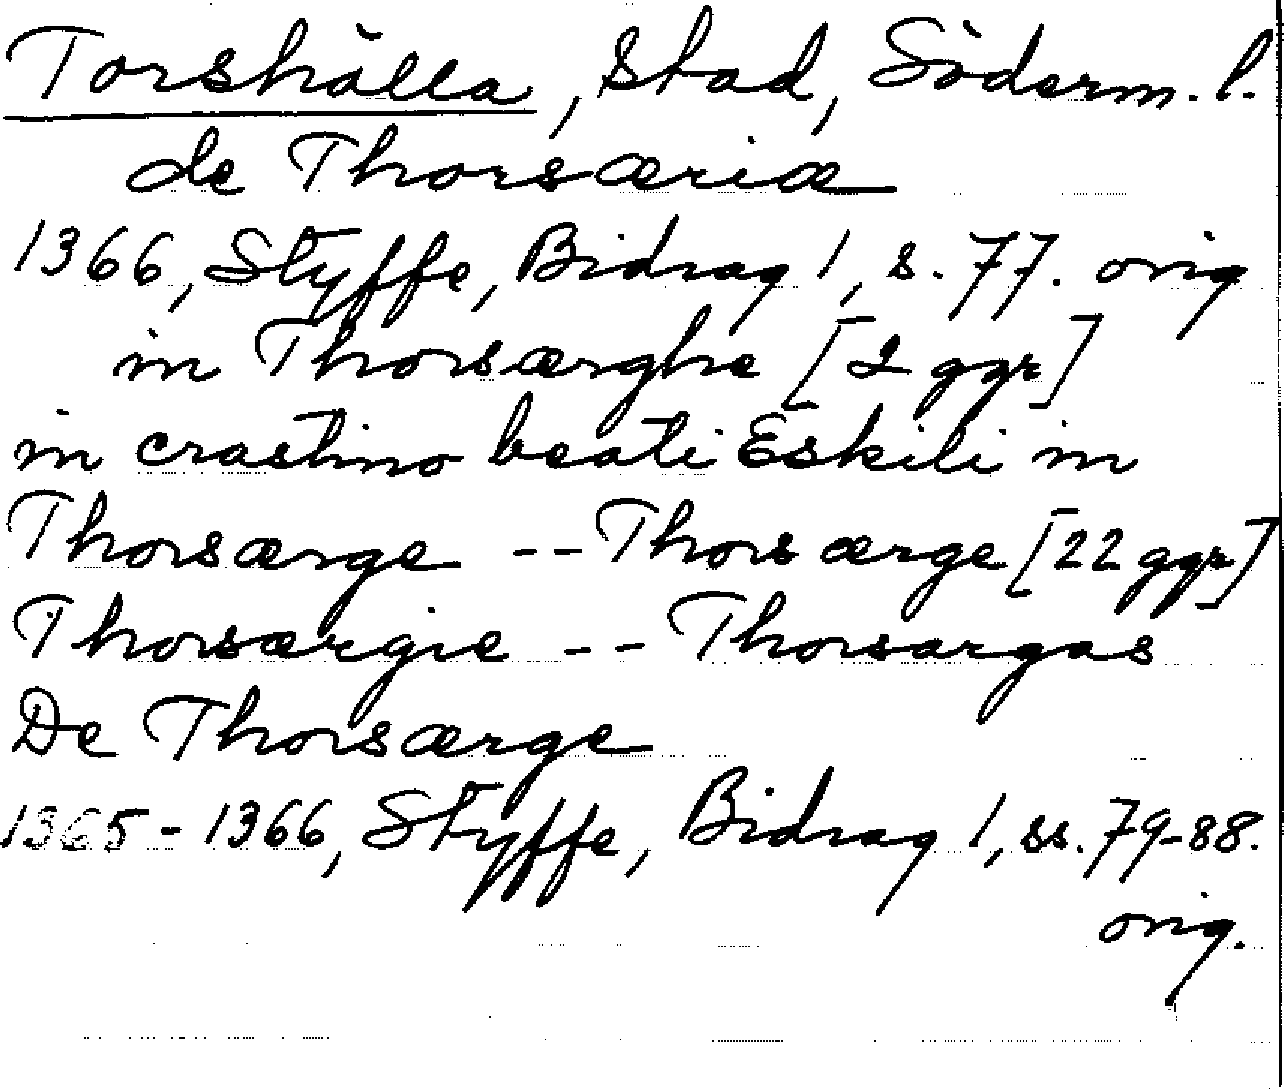 Torshälla, stad, Söderm. l.
de Thorsæriæ
1366, Styffe, Bidrag 1, s. 77. orig
in Thorsærghe [2 ggr]
in crastino beati Eskili in
Thorsærge -- Thorsærge [22 ggr]
Thorsærgie -- Thorsargas
De Thorsærge
1365-1366, Styffe, Bidrag 1, ss. 79-88.
orig.